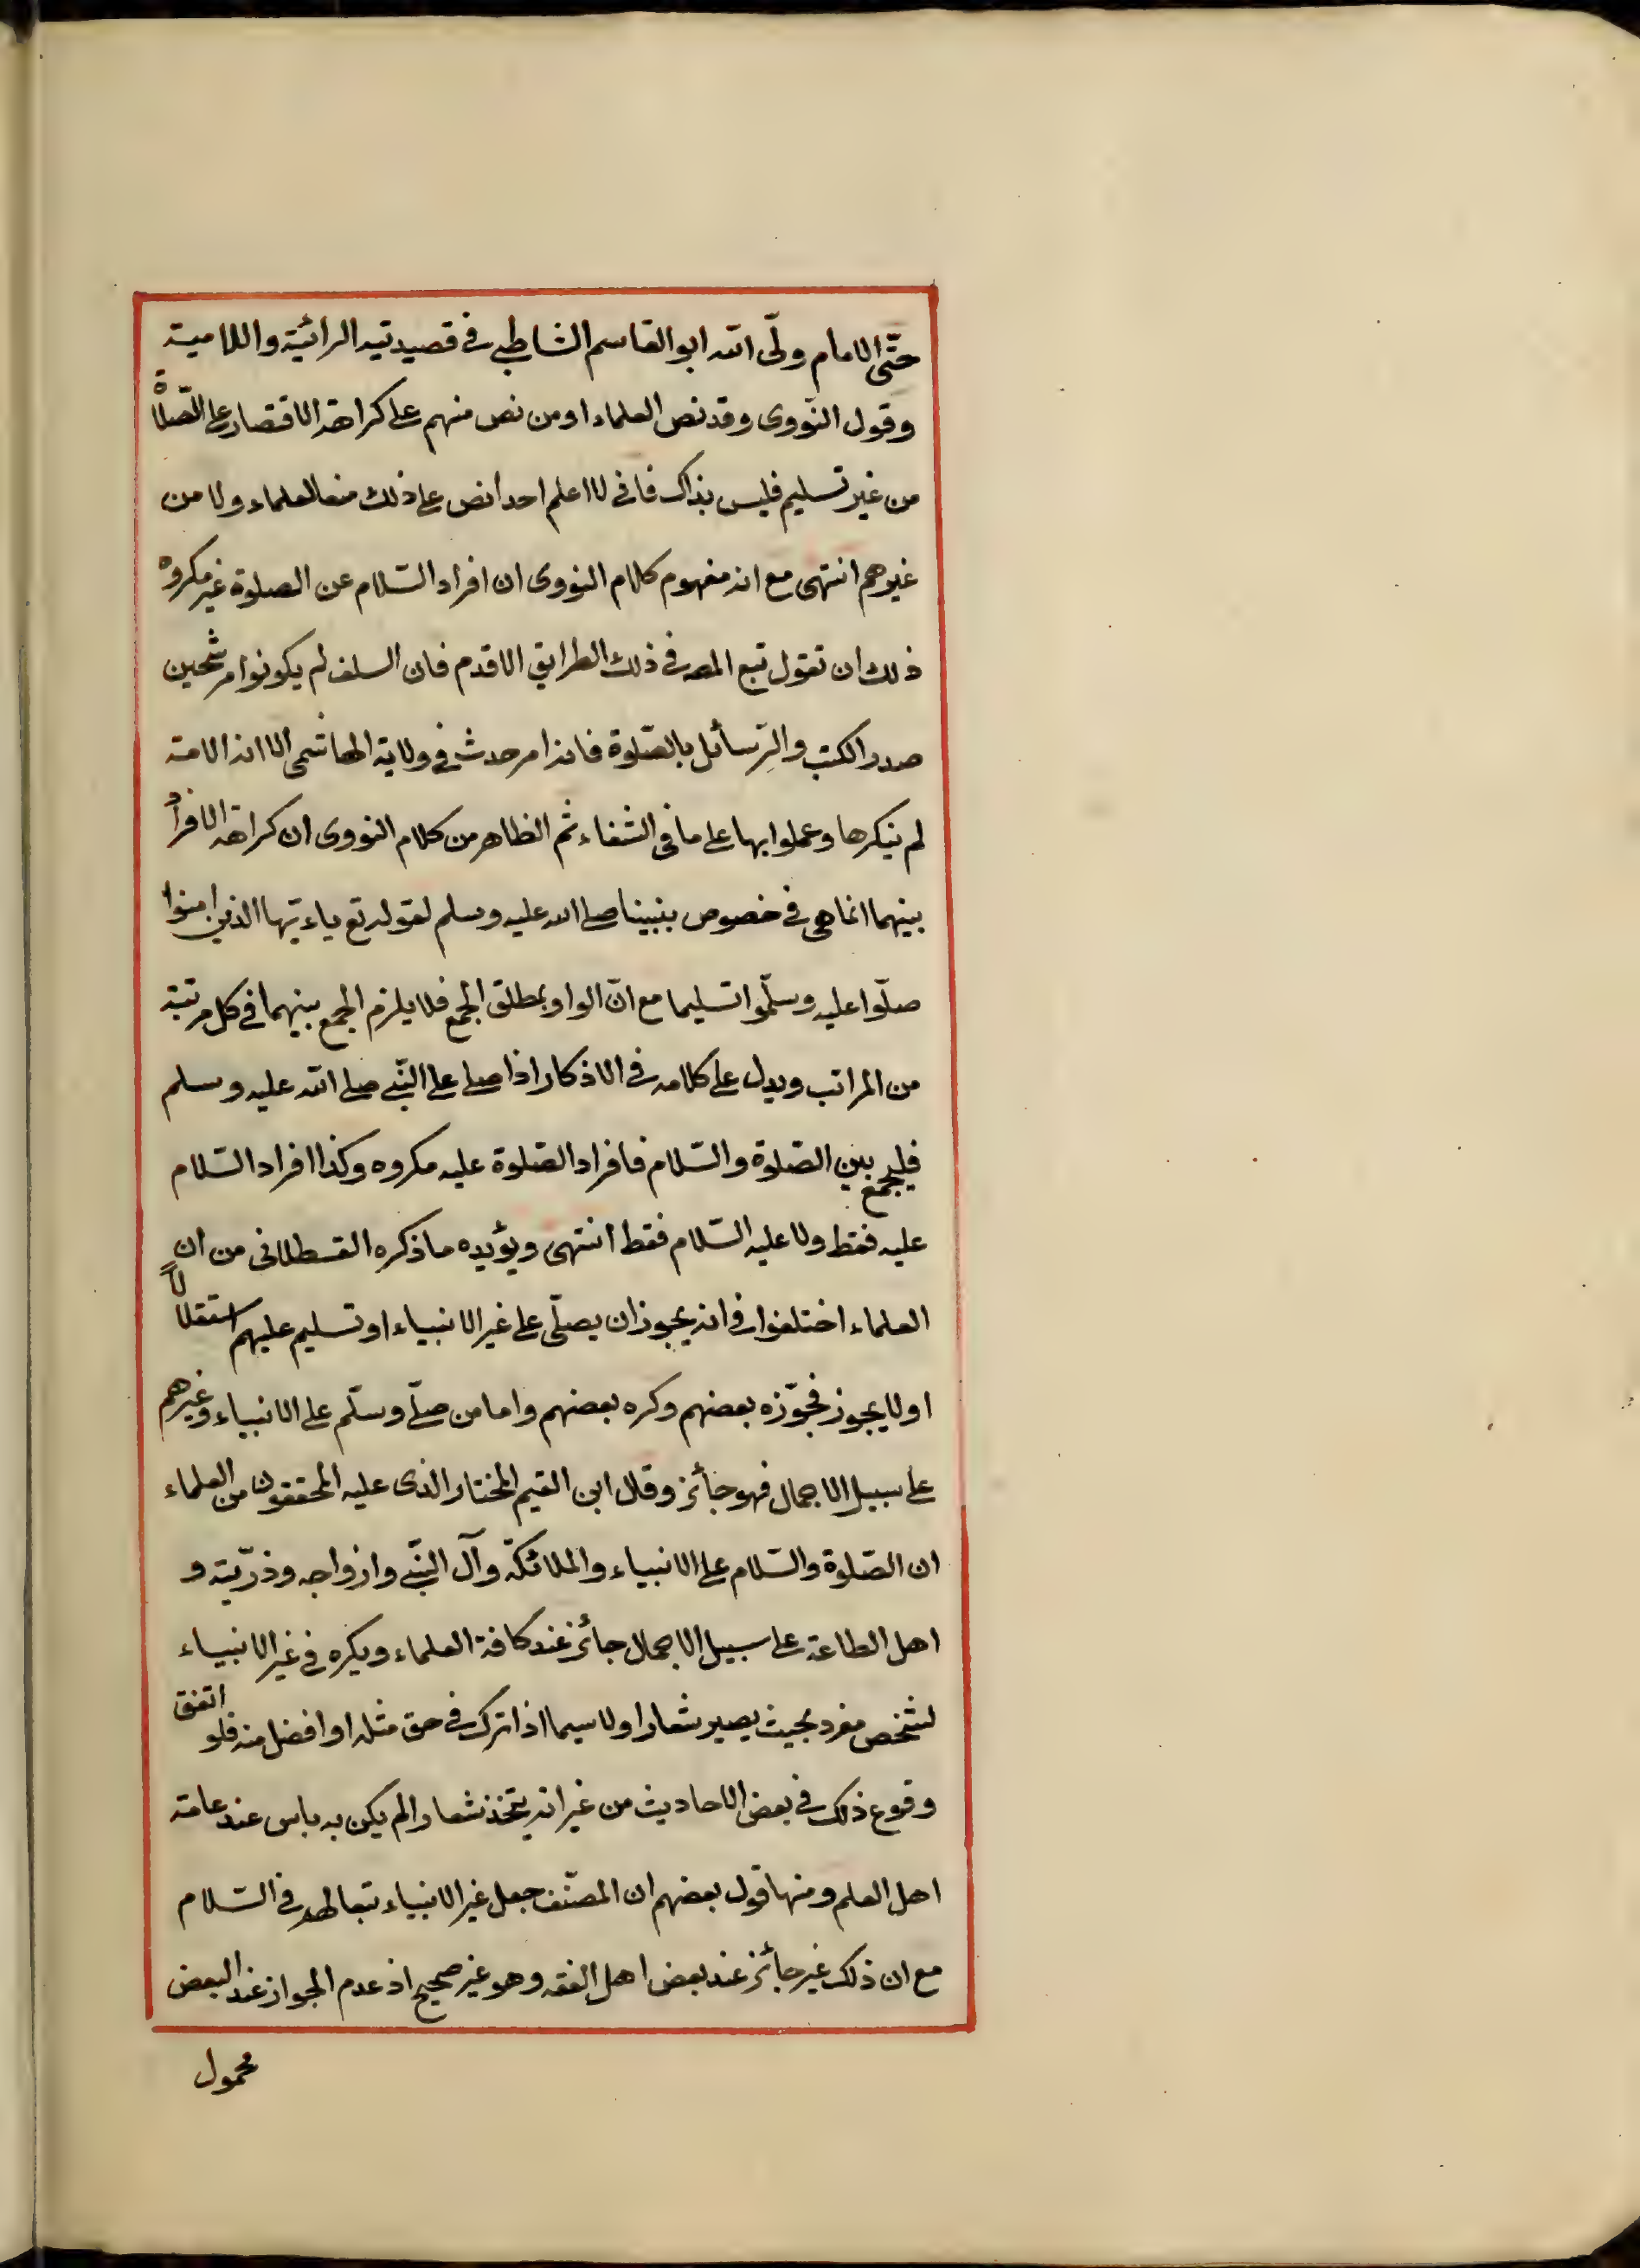 حتّى الامام ولّى الله ابو القاسم الشاطبى فى قصيدتيه الرائية واللامية
وقول النّووى وقد نص العلماء او من نص منهم على كراهة الاقتصار على الصّلاة
من غير تسليم فليس بذاك فانى لا اعلم احدا نص على ذلك من العلماء ولا من
غيرهم انتهى مع انه مفهوم كلام النووى ان افراد السّلام عن الصلوة غير مكروه
ذلك ان تقول تبع المص فى ذلك الطرايق الاقدم فان السلف لم يكونوا مرشحين
صدر الكتب والرّسائل بالصّلوة فانه امر حدث فى ولاية الهاشمى الا انه الامة
لم ينكرها وعملوا بها على ما فى الشفاء ثم الظاهر من كلام النووى ان كراهة الافراد
بينهما انما هى فى خصوص بنبينا صلى الله عليه وسلم لقوله تع ياءيّها الذين امنوا
صلّوا عليه وسلّموا تسليما مع انّ الواو بمطلق الجمع فلا يلزم الجمع بينهما فى كل مرتبة
من المراتب ويدل على كلامه فى الاذكار اذا صلى على النّبى صلى الله عليه وسلم
فليجمع بين الصّلوة والسّلام فافراد الصّلوة عليه مكروه وكذا افراد السّلام
عليه فقط ولا عليه السّلام فقط انتهى ويؤيده ما ذكره القسطلانى من ان
العلماء اختلفوا فى انه يجوز ان يصلّى على غير الانبياء او تسليم عليهم استقلالاً
او لا يجوز فجوّزه بعضهم وكره بعضهم واما من صلّى وسلّم على الانبياء وغيرهم
على سبيل الاجمال فهو جائز وقال ابن القيم المختار الذى عليه المحققون من العلماء
ان الصّلوة والسّلام على الانبياء والملائكة وآل النّبى وازواجه وذرّيته و
اهل الطاعة على سبيل الاجمال جائز عند كافة العلماء ويكره فى غير الانبياء
لشخص مفرد بحيث يصير شعارا ولا سيما اذا ترك فى حق مثله او افضل منه فلو اتفق
وقوع ذلك فى بعض الاحاديث من غير انه يتخذ شعارا لم يكن به باس عند عامة
اهل العلم ومنها قول بعضهم ان المصنّف جعل غير الانبياء تبعا لهم فى السّلام
مع ان ذلك غير جائز عند بعض اهل الفقه وهو غير صحيح اذ عدم الجواز عند البعض
محمول